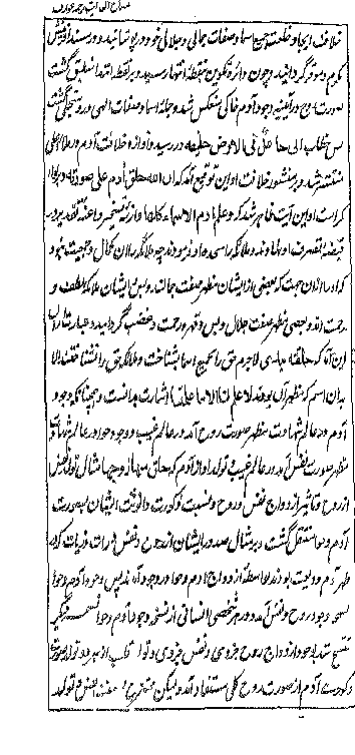 خلافت ایجاد خلعت جمیع اسما و صفات جمالی و جلالی خود درو پوشانید و در مسند آفرینش
تکریم و موقر گردانید و چون دائره تکوین بنقطه انتها رسید و بر نقطه ابتدا منطبق گشت
صورت روح در آئینه وجود آدم خاکی منعکس شد و جمله اسما و صفات الهی درو متجلی گشت
پس خطاب انی جاعل فی الارض خلیفه در رسید و آوازه خلافت آدم در ملاء اعلی
منتشر شد و بر منشور خلافت او این توقیع آمد که ان الله خلق آدم علی صورته و بر لوای
کرامت او این آیت ظاهر شد که و علم آدم الاسماء کلها و ازمه تسخیر و اعنه تقدیر در
قبضه تصرف او نهادند و ملائکه را بسجده او فرمودند چه ملائکه را آن کمال و جمعیت نبود
که او را ازان جهت که بعضی از ایشان مظهر صفت جمال‌اند و بس ایشان ملائکه لطف و
رحمت اند و بعضی مظهر صفت جلال و بس و قهر و رحمت و غضب
این آنکه لاجرم حق را بجمیع اسما بشناخت و ملائکه حق را نشناختند الا
بدان اسم که مظهر آن بودند لا علم لنا الا ما علمتنا اشارت بدانست و همچنانکه وجود
آدم در عالم شهادت مظهر صورت روح آمد در عالم غیب و وجود حوا در عالم شهادت
مظهر صورت نفس آمد در عالم غیب و تولد او از آدم که خلق منها زوجها مثال تولد نفس
از روح و تاثیر ازدواج نفس و روح و نسبت ذکورت و انوثت ایشان بصورت
آدم و حوا منتقل گشت و بر مثال صدور ایشان از روح و نفس ذرات ذریات که در
ظهر آدم ودیعت بودند بواسطه ازدواج آدم و حوا در وجود آمدند پس وجود آدم و حوا
نسخه وجود روح و نفس آمد و در هر شخصی انسانی از نسخه وجود آدم و حوا نسخه دیگر
منتسخ شد بوجود ازدواج روح جزوی و نفس جزوی و تولد قلب از هر دو تولد صورت
ذکور آدم از صورت روح کلی مستفاد آمد ولیکن ممتزج بصفت نفس و تولد